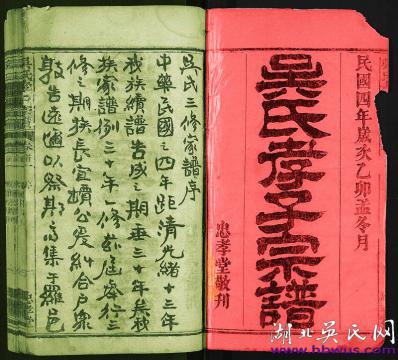 民國四年歲次乙卯孟冬月
吳氏孝子宗譜
忠孝堂敬刊
吳氏三修家譜序
中華民國之四年距清光緒十三年
我族續譜告成之期垂三十年矣我
族家譜例三十年一修於是舉行三
修之期族長宜續公爰糾合戶衆
敦告遠邇以祭期而集于羅邑
湖北吳氏网
www.hbwus.com